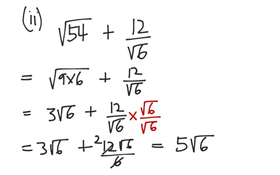 (ii)
√54 + 12/√6
= √9×6 + 12/√6
= 3√6 + 12/√6 × √6/√6
= 3√6 + ²12√6/6 = 5√6